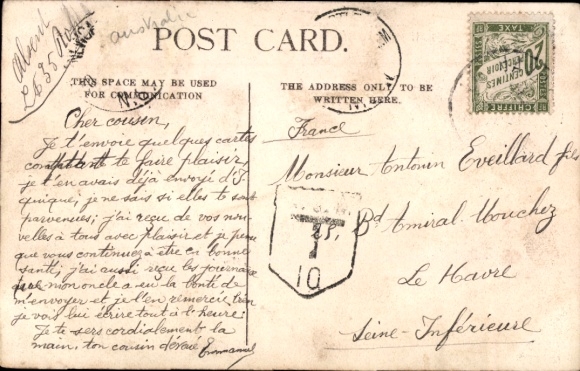 australie
POST CARD.
THIS SPACE MAY BE USED
FOR COMMUNICATION
THE ADDRESS ONLY TO BE
WRITTEN HERE.
Cher cousin,
Je t'envoie quelques cartes
comptant te faire plaisir,
je t'en avais déjà envoyé d'I
quique, je ne sais si elles te sont
parvenues; j'ai reçu de vos nou-
velles à tous avec plaisir et je pense
que vous continuez à être en bonne
santé, j'ai aussi reçu les journaux
que mon oncle a eu la bonté de
m'envoyer et je l'en remercie bien
je vais lui écrire tout à l'heure.
Je te sers cordialement la
main, ton cousin dévoué Emmanuel
France
Monsieur Antonin Eveillard fils
25, Bd Amiral Mouchez
Le Havre
Seine-Inférieure
T
10
20
CENTIMES
À PERCEVOIR
CHIFFRE
TAXE
POSTES